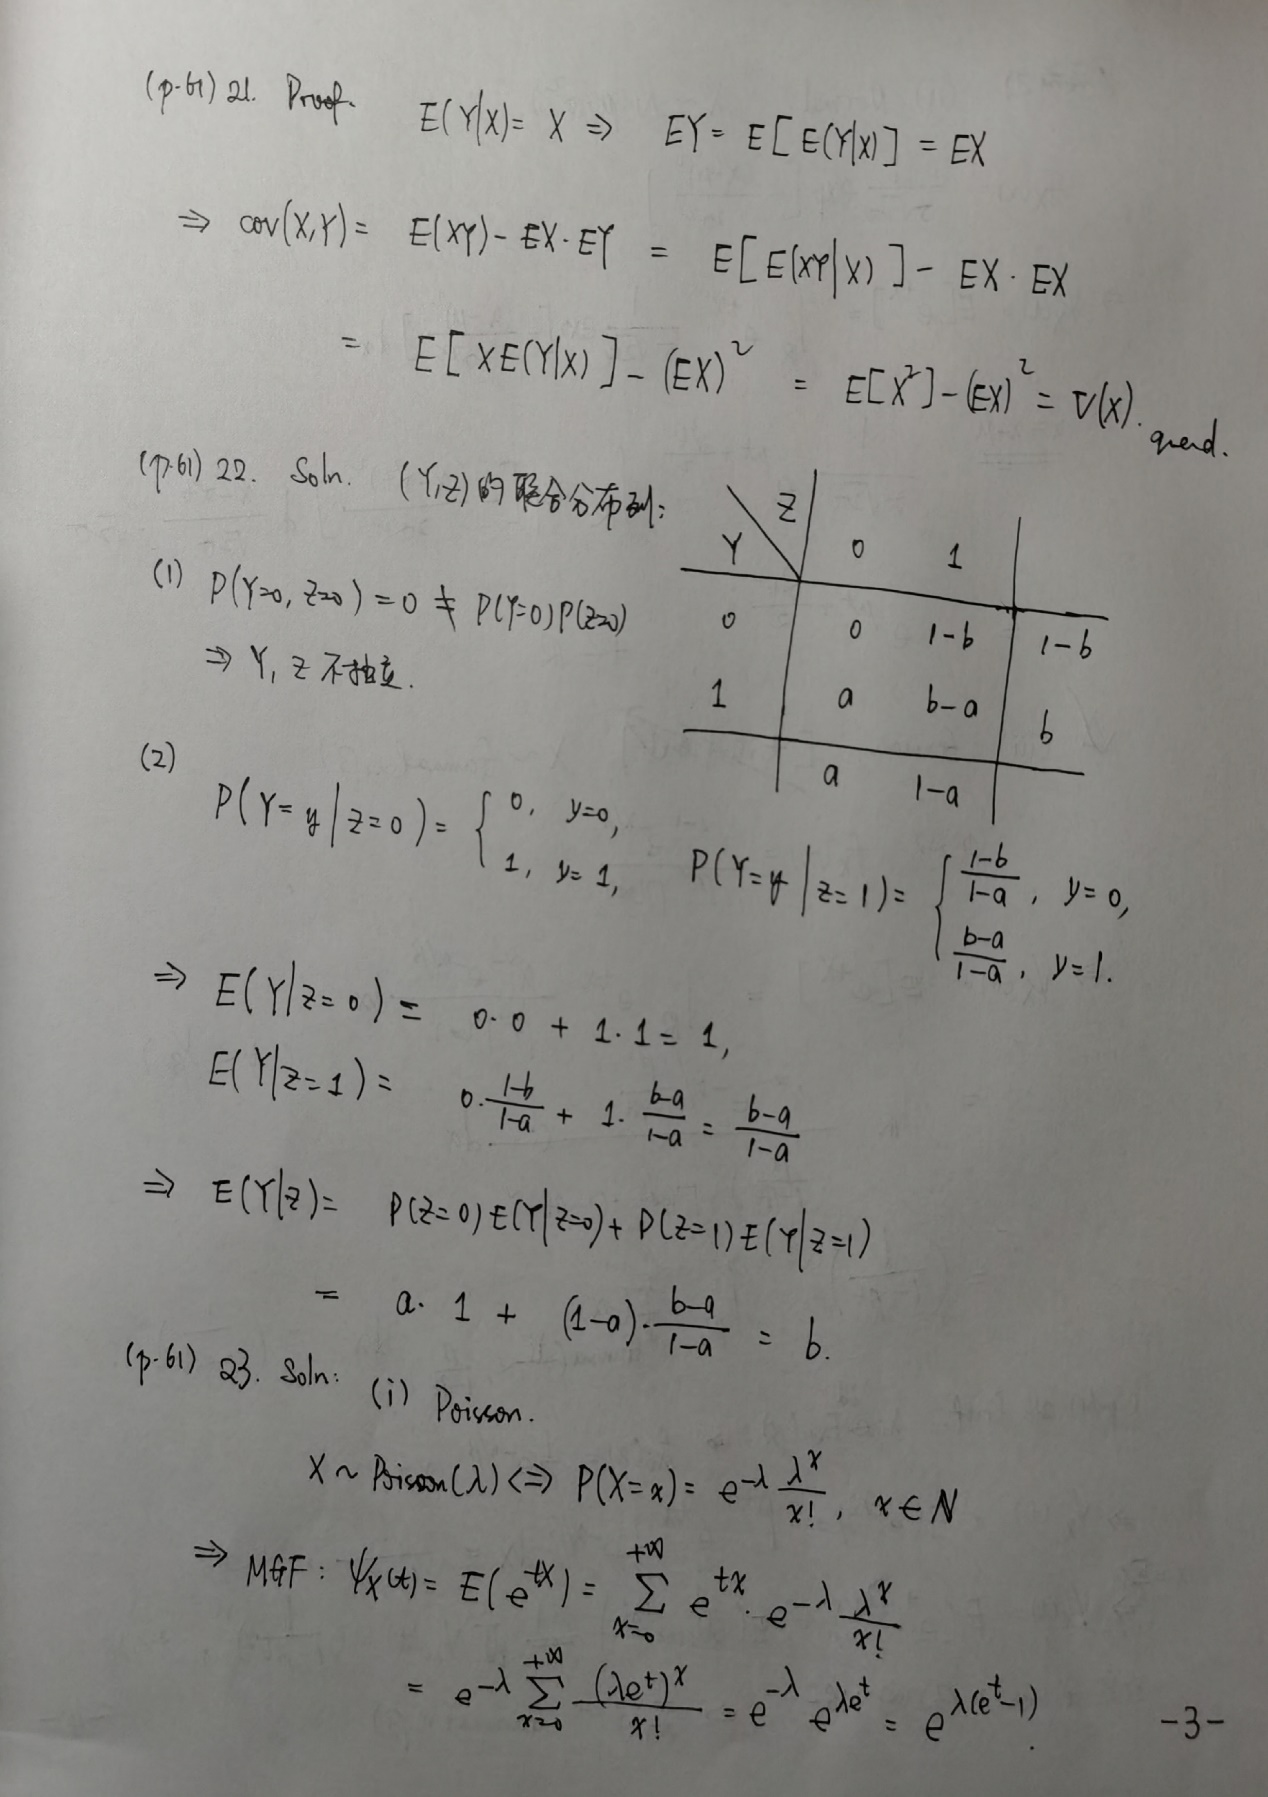 (p.61) 21. Proof. E(Y|X) = X ⇒ EY = E[E(Y|X)] = EX
⇒ cov(X,Y) = E(XY) - EX·EY = E[E(XY|X)] - EX·EX
= E[XE(Y|X)] - (EX)² = E[X²] - (EX)² = V(X).
(p.61) 22. Soln. (Y,Z)的联合分布列:
Z
Y 0 1
0 0 1-b 1-b
1 a b-a b
a 1-a
(1) P(Y=0, Z=0) = 0 ≠ P(Y=0)P(Z=0)
⇒ Y, Z 不独立.
(2)
P(Y=y|Z=0) = { 0, y=0,
1, y=1,
P(Y=y|Z=1) = { (1-b)/(1-a), y=0,
(b-a)/(1-a), y=1.
⇒ E(Y|Z=0) = 0·0 + 1·1 = 1,
E(Y|Z=1) = 0·(1-b)/(1-a) + 1·(b-a)/(1-a) = (b-a)/(1-a)
⇒ E(Y|Z) = P(Z=0)E(Y|Z=0) + P(Z=1)E(Y|Z=1)
= a·1 + (1-a)·(b-a)/(1-a) = b.
(p.61) 23. Soln: (i) Poisson.
X ~ Poisson(λ) ⇔ P(X=x) = e^{-λ} λ^x/x!, x∈N
⇒ MGF: ψ_X(t) = E(e^{tX}) = Σ_{x=0}^{+∞} e^{tx}·e^{-λ} λ^x/x!
= e^{-λ} Σ_{x=0}^{+∞} (λe^t)^x/x! = e^{-λ} e^{λe^t} = e^{λ(e^t-1)}.
-3-